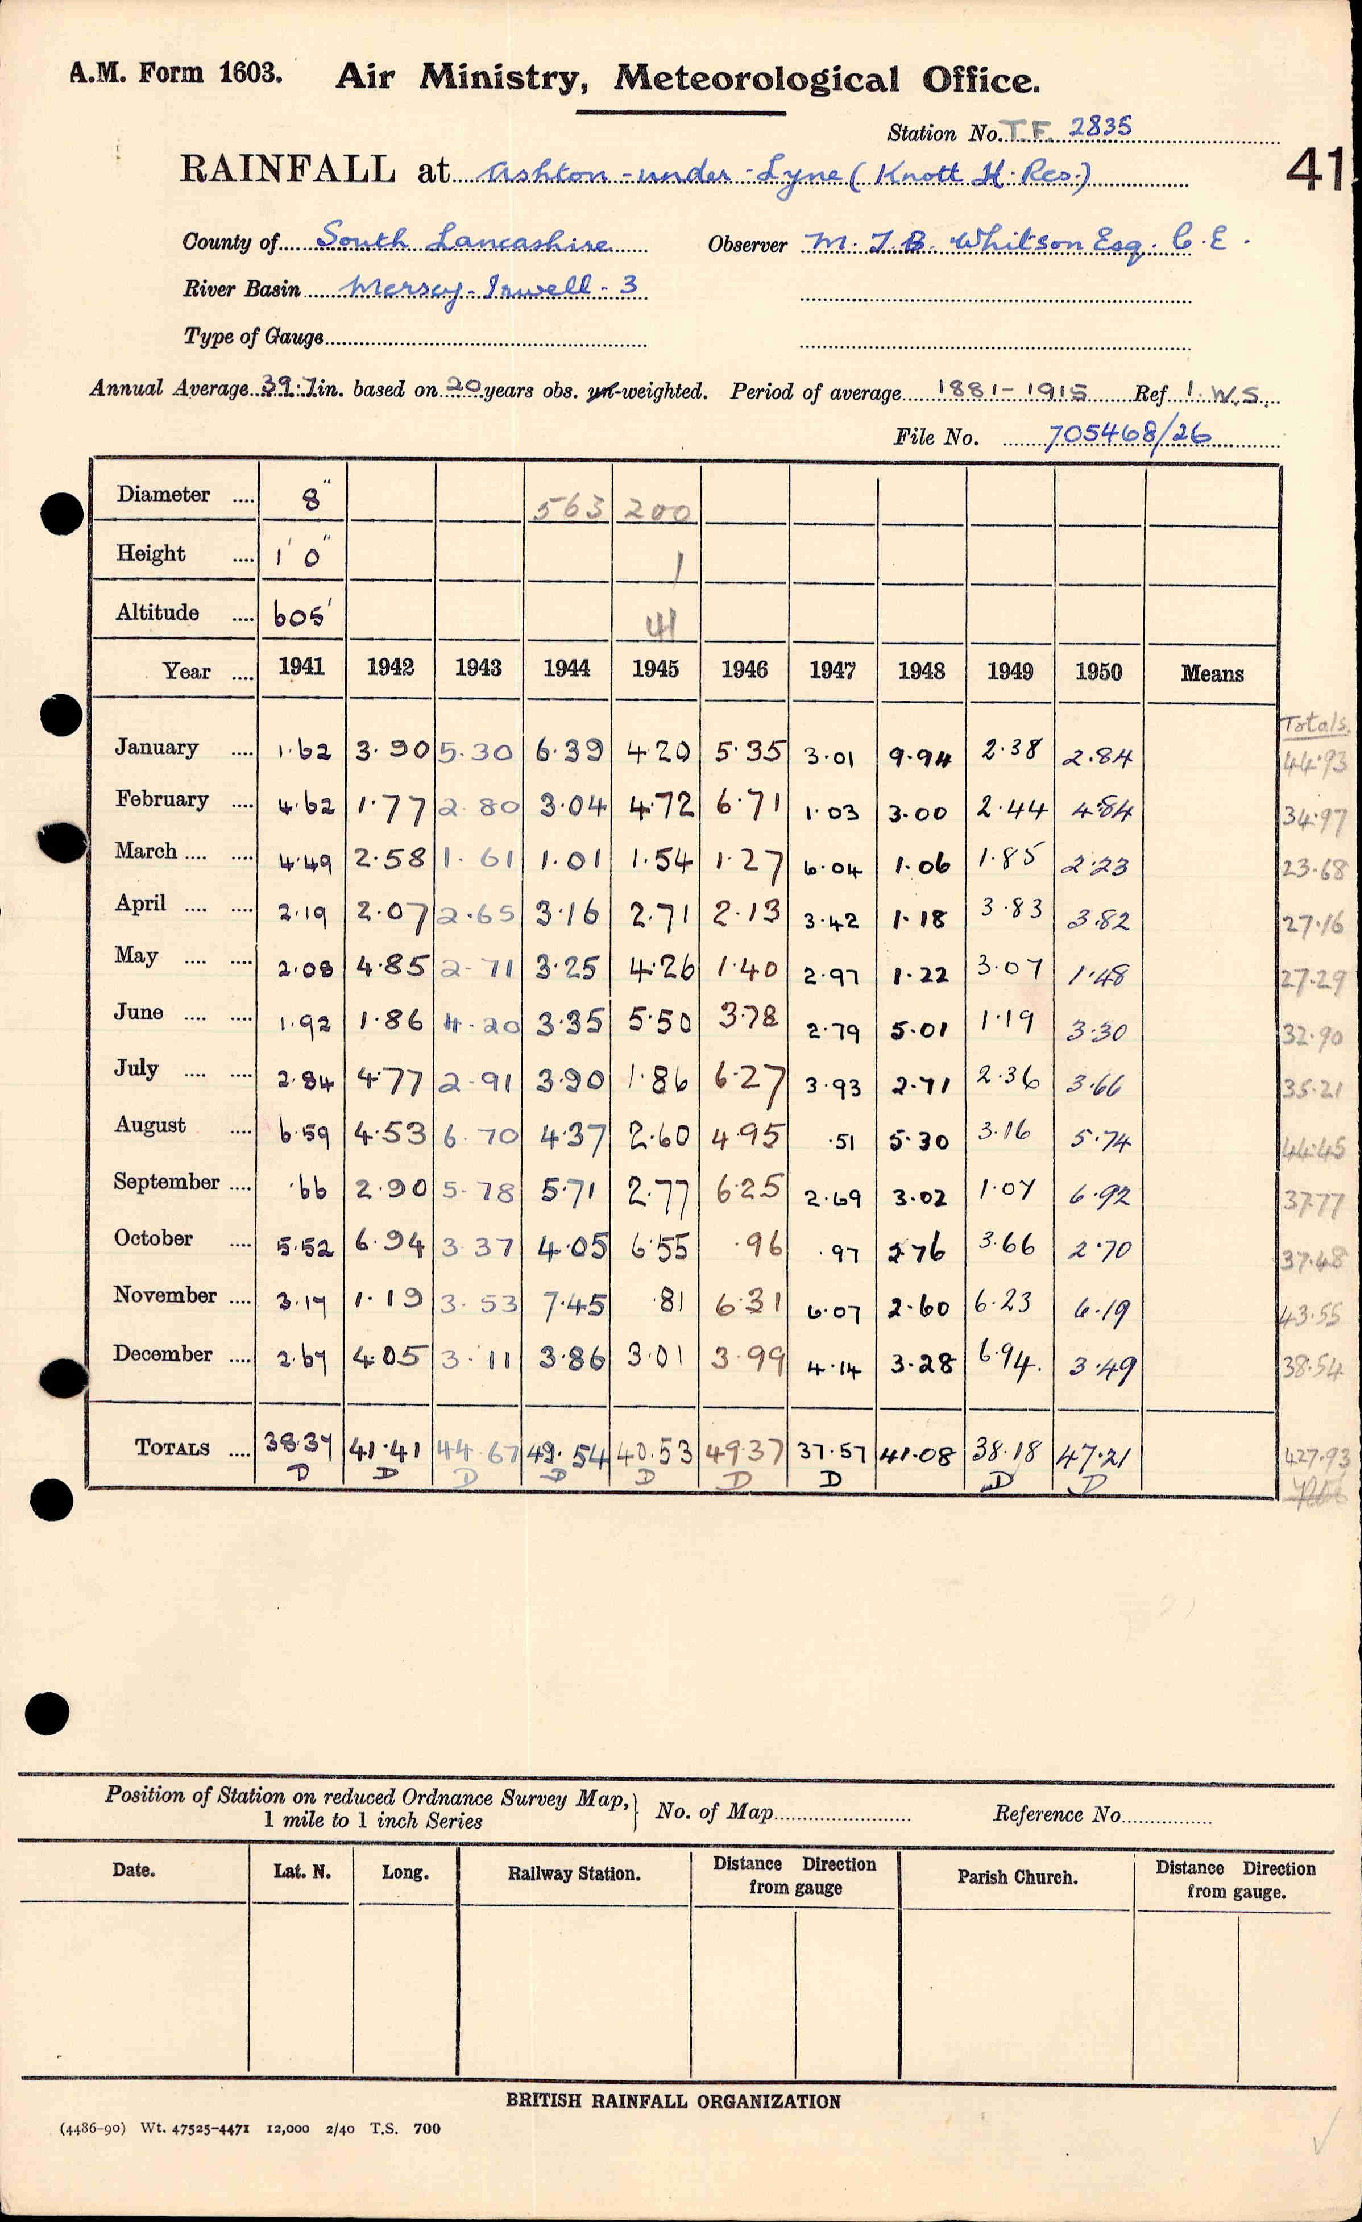 A.M. Form 1603. Air Ministry, Meteorological Office.
Station No. T.F. 2835
41
RAINFALL at Ashton-under-Lyne (Knott H. Res.)
County of South Lancashire Observer M. T. B. Whitson Esq. C.E.
River Basin Mersey-Irwell-3
Type of Gauge
Annual Average 39.7 in. based on 20 years obs. un-weighted. Period of average 1881-1915 Ref 1. W.S.
File No. 705468/26
Diameter .... 8" 563 200
Height .... 1' 0" 1
Altitude .... 605' 41
Year .... 1941 1942 1943 1944 1945 1946 1947 1948 1949 1950 Means
Totals
January .... 1.62 3.90 5.30 6.39 4.20 5.35 3.01 9.94 2.38 2.84 44.93
February .... 4.62 1.77 2.80 3.04 4.72 6.71 1.03 3.00 2.44 4.84 34.97
March .... .... 4.49 2.58 1.61 1.01 1.54 1.27 6.04 1.06 1.85 2.23 23.68
April .... .... 2.19 2.07 2.65 3.16 2.71 2.13 3.42 1.18 3.83 3.82 27.16
May .... .... 2.08 4.85 2.71 3.25 4.26 1.40 2.97 1.22 3.07 1.48 27.29
June .... .... 1.92 1.86 4.20 3.35 5.50 3.78 2.79 5.01 1.19 3.30 32.90
July .... .... 2.84 4.77 2.91 3.90 1.86 6.27 3.93 2.71 2.36 3.66 35.21
August .... 6.59 4.53 6.70 4.37 2.60 4.95 .51 5.30 3.16 5.74 44.45
September .... .66 2.90 5.78 5.71 2.77 6.25 2.69 3.02 1.07 6.92 37.77
October .... 5.52 6.94 3.37 4.05 6.55 .96 .97 2.76 3.66 2.70 37.48
November .... 3.17 1.19 3.53 7.45 .81 6.31 6.07 2.60 6.23 6.19 43.55
December .... 2.67 4.05 3.11 3.86 3.01 3.99 4.14 3.28 6.94. 3.49 38.54
TOTALS .... 38.37 41.41 44.67 49.54 40.53 49.37 37.57 41.08 38.18 47.21 427.93
D D D D D D D D D
Position of Station on reduced Ordnance Survey Map,
1 mile to 1 inch Series
No. of Map Reference No.
Date. Lat. N. Long. Railway Station. Distance Direction from gauge Parish Church. Distance Direction from gauge.
BRITISH RAINFALL ORGANIZATION
(4486-90) Wt. 47525-4471 12,000 2/40 T.S. 700